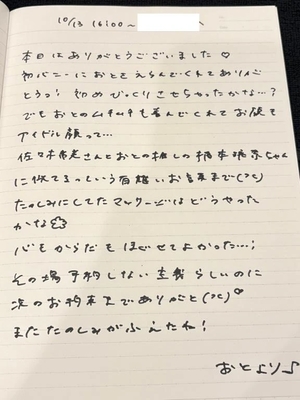 10/13 16:00〜 へ
本日はありがとうございました♡
初バニーにおとをえらんでくれてありがと
とうっ! 初めびっくりさせちゃったかな…?
でもおとのムチムチも喜んでくれてお顔を
アイドル顔って…
佐々木希さんとおとの推しの橋本環奈ちゃん
に似てるっていう有難いお言葉まで
たのしみにしてたマッサージはどうやった
かな
心もからだもほぐせてよかった…!
その場予約しない主義らしいのに
次のお約束までありがと
またたのしみがふえたね!
おとより♪